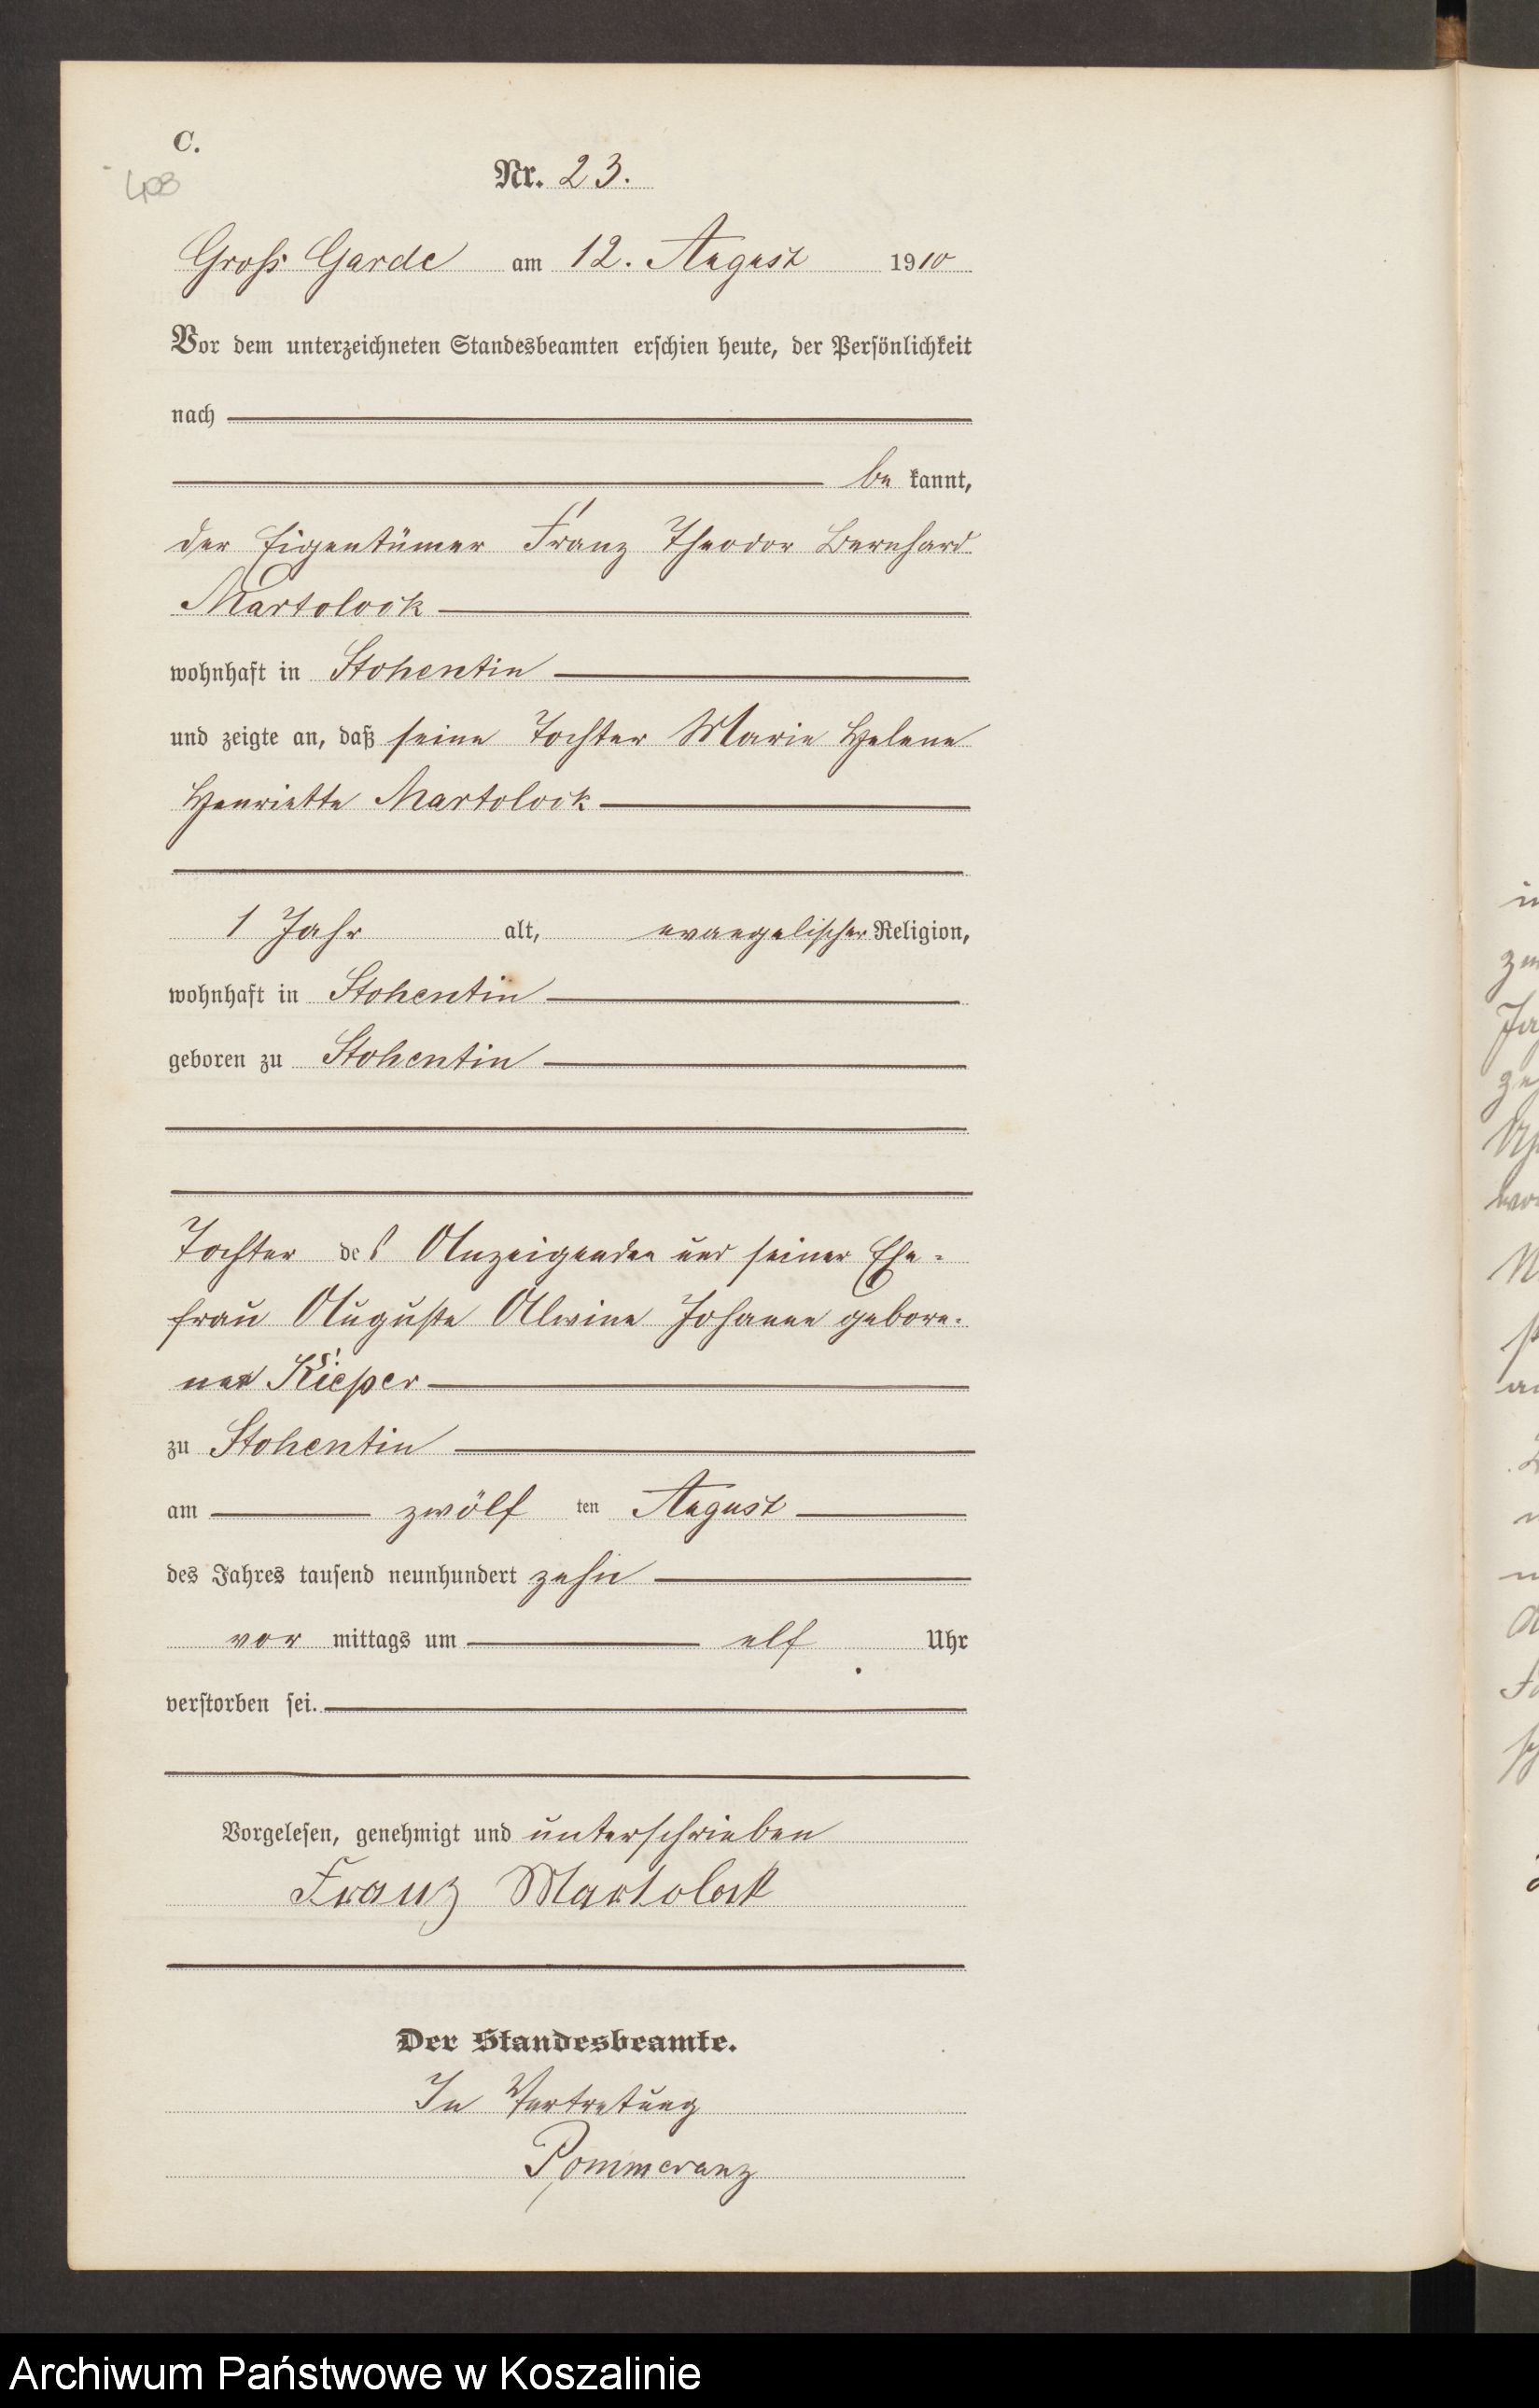 C.
403
Nr. 23.
Groß Garde am 12. August 1910
Vor dem unterzeichneten Standesbeamten erschien heute, der Persönlichkeit
nach
be kannt,
der Eigentümer Franz Theodor Bernhard
Martolock
wohnhaft in Stohentin
und zeigte an, daß seine Tochter Marie Helene
Henriette Martolock
1 Jahr alt, evangelischer Religion,
wohnhaft in Stohentin
geboren zu Stohentin
Tochter des Anzeigenden und seiner Ehe-
frau Auguste Alwine Johanne gebore-
nen Kieper
zu Stohentin
am zwölf ten August
des Jahres tausend neunhundert zehn
vor mittags um elf Uhr
verstorben sei.
Vorgelesen, genehmigt und unterschrieben
Franz Martolock
Der Standesbeamte.
In Vertretung
Pommeranz
Archiwum Państwowe w Koszalinie